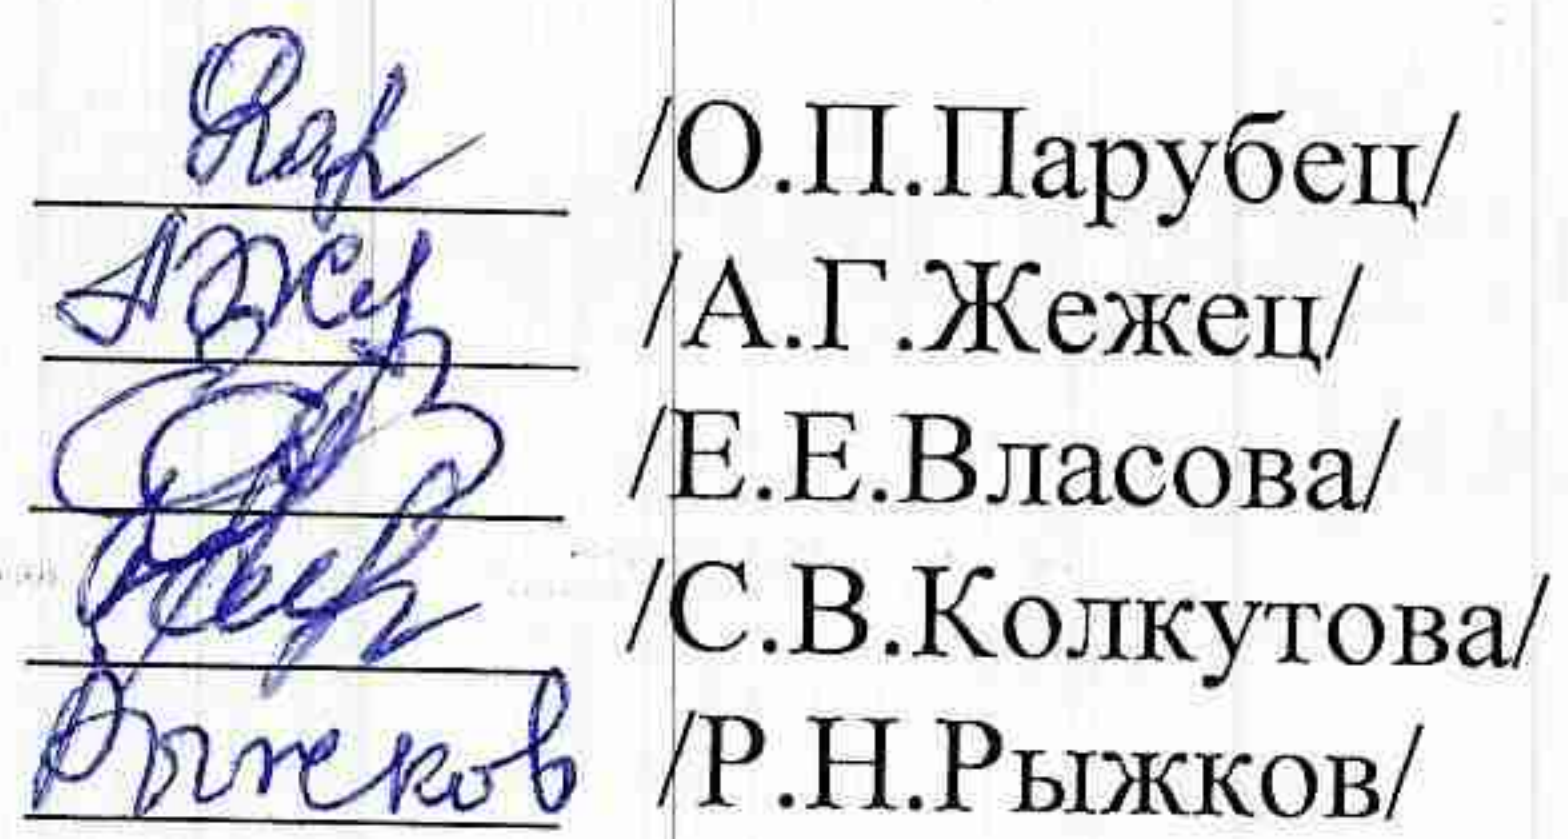 /О.П.Парубец/
/А.Г.Жежец/
/Е.Е.Власова/
/С.В.Колкутова/
Рыжков /Р.Н.Рыжков/